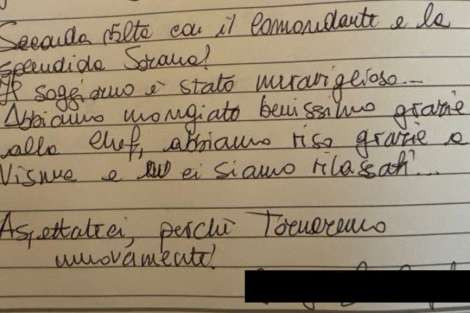 Seconda volta con il Comandante e la
splendida Sorana!
Il soggiorno è stato meraviglioso...
Abbiamo mangiato benissimo grazie
allo chef, abbiamo riso grazie a
e ci siamo rilassati...
Aspettateci, perché Torneremo
nuovamente!